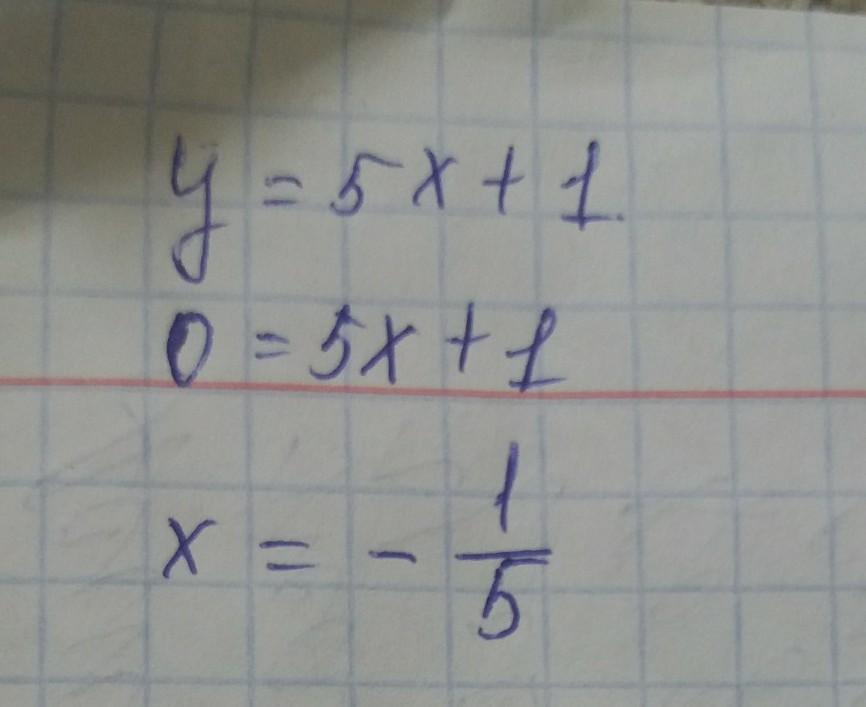 y = 5x + 1
0 = 5x + 1
x = - 1/5